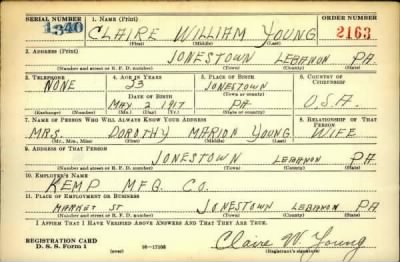 SERIAL NUMBER 1. NAME (Print) ORDER NUMBER
1340 CLAIRE WILLIAM YOUNG 2163
(First) (Middle) (Last)
2. ADDRESS (Print)
JONESTOWN LEBANON PA.
(Number and street or R. F. D. number) (Town) (County) (State)
3. TELEPHONE 4. AGE IN YEARS 5. PLACE OF BIRTH 6. COUNTRY OF CITIZENSHIP
NONE 23 JONESTOWN
DATE OF BIRTH (Town or county)
MAY 2 1917 PA U.S.A.
(Exchange) (Number) (Mo.) (Day) (Yr.) (State or country)
7. NAME OF PERSON WHO WILL ALWAYS KNOW YOUR ADDRESS 8. RELATIONSHIP OF THAT PERSON
MRS. DOROTHY MARION YOUNG WIFE
(Mr., Mrs., Miss) (First) (Middle) (Last)
9. ADDRESS OF THAT PERSON
JONESTOWN LEBANON PA
(Number and street or R. F. D. number) (Town) (County) (State)
10. EMPLOYER'S NAME
KEMP MFG. CO.
11. PLACE OF EMPLOYMENT OR BUSINESS
MARKET ST JONESTOWN LEBANON PA
(Number and street or R. F. D. number) (Town) (County) (State)
I AFFIRM THAT I HAVE VERIFIED ABOVE ANSWERS AND THAT THEY ARE TRUE.
REGISTRATION CARD
D. S. S. Form 1 (over) 16—17105 Claire W. Young
(Registrant's signature)